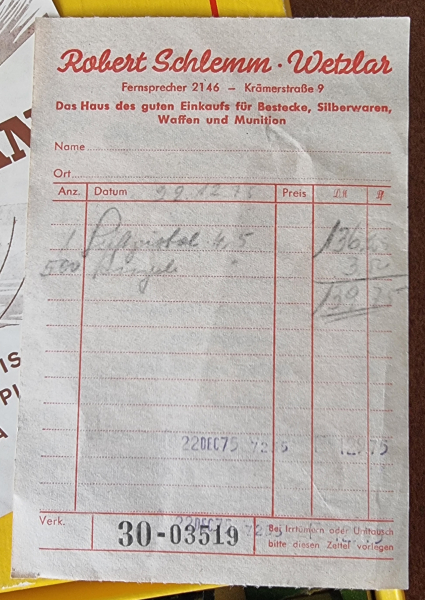 Robert Schlemm · Wetzlar
Fernsprecher 2146 – Krämerstraße 9
Das Haus des guten Einkaufs für Bestecke, Silberwaren,
Waffen und Munition
Name
Ort
Anz. Datum 22.12.75 Preis DM
1 Luftpistole 4,5 136
500 Kugeln " 3
139 75
22DEC75
Verk. 30-03519 Bei Irrtümern oder Umtausch
bitte diesen Zettel vorlegen
22DEC75